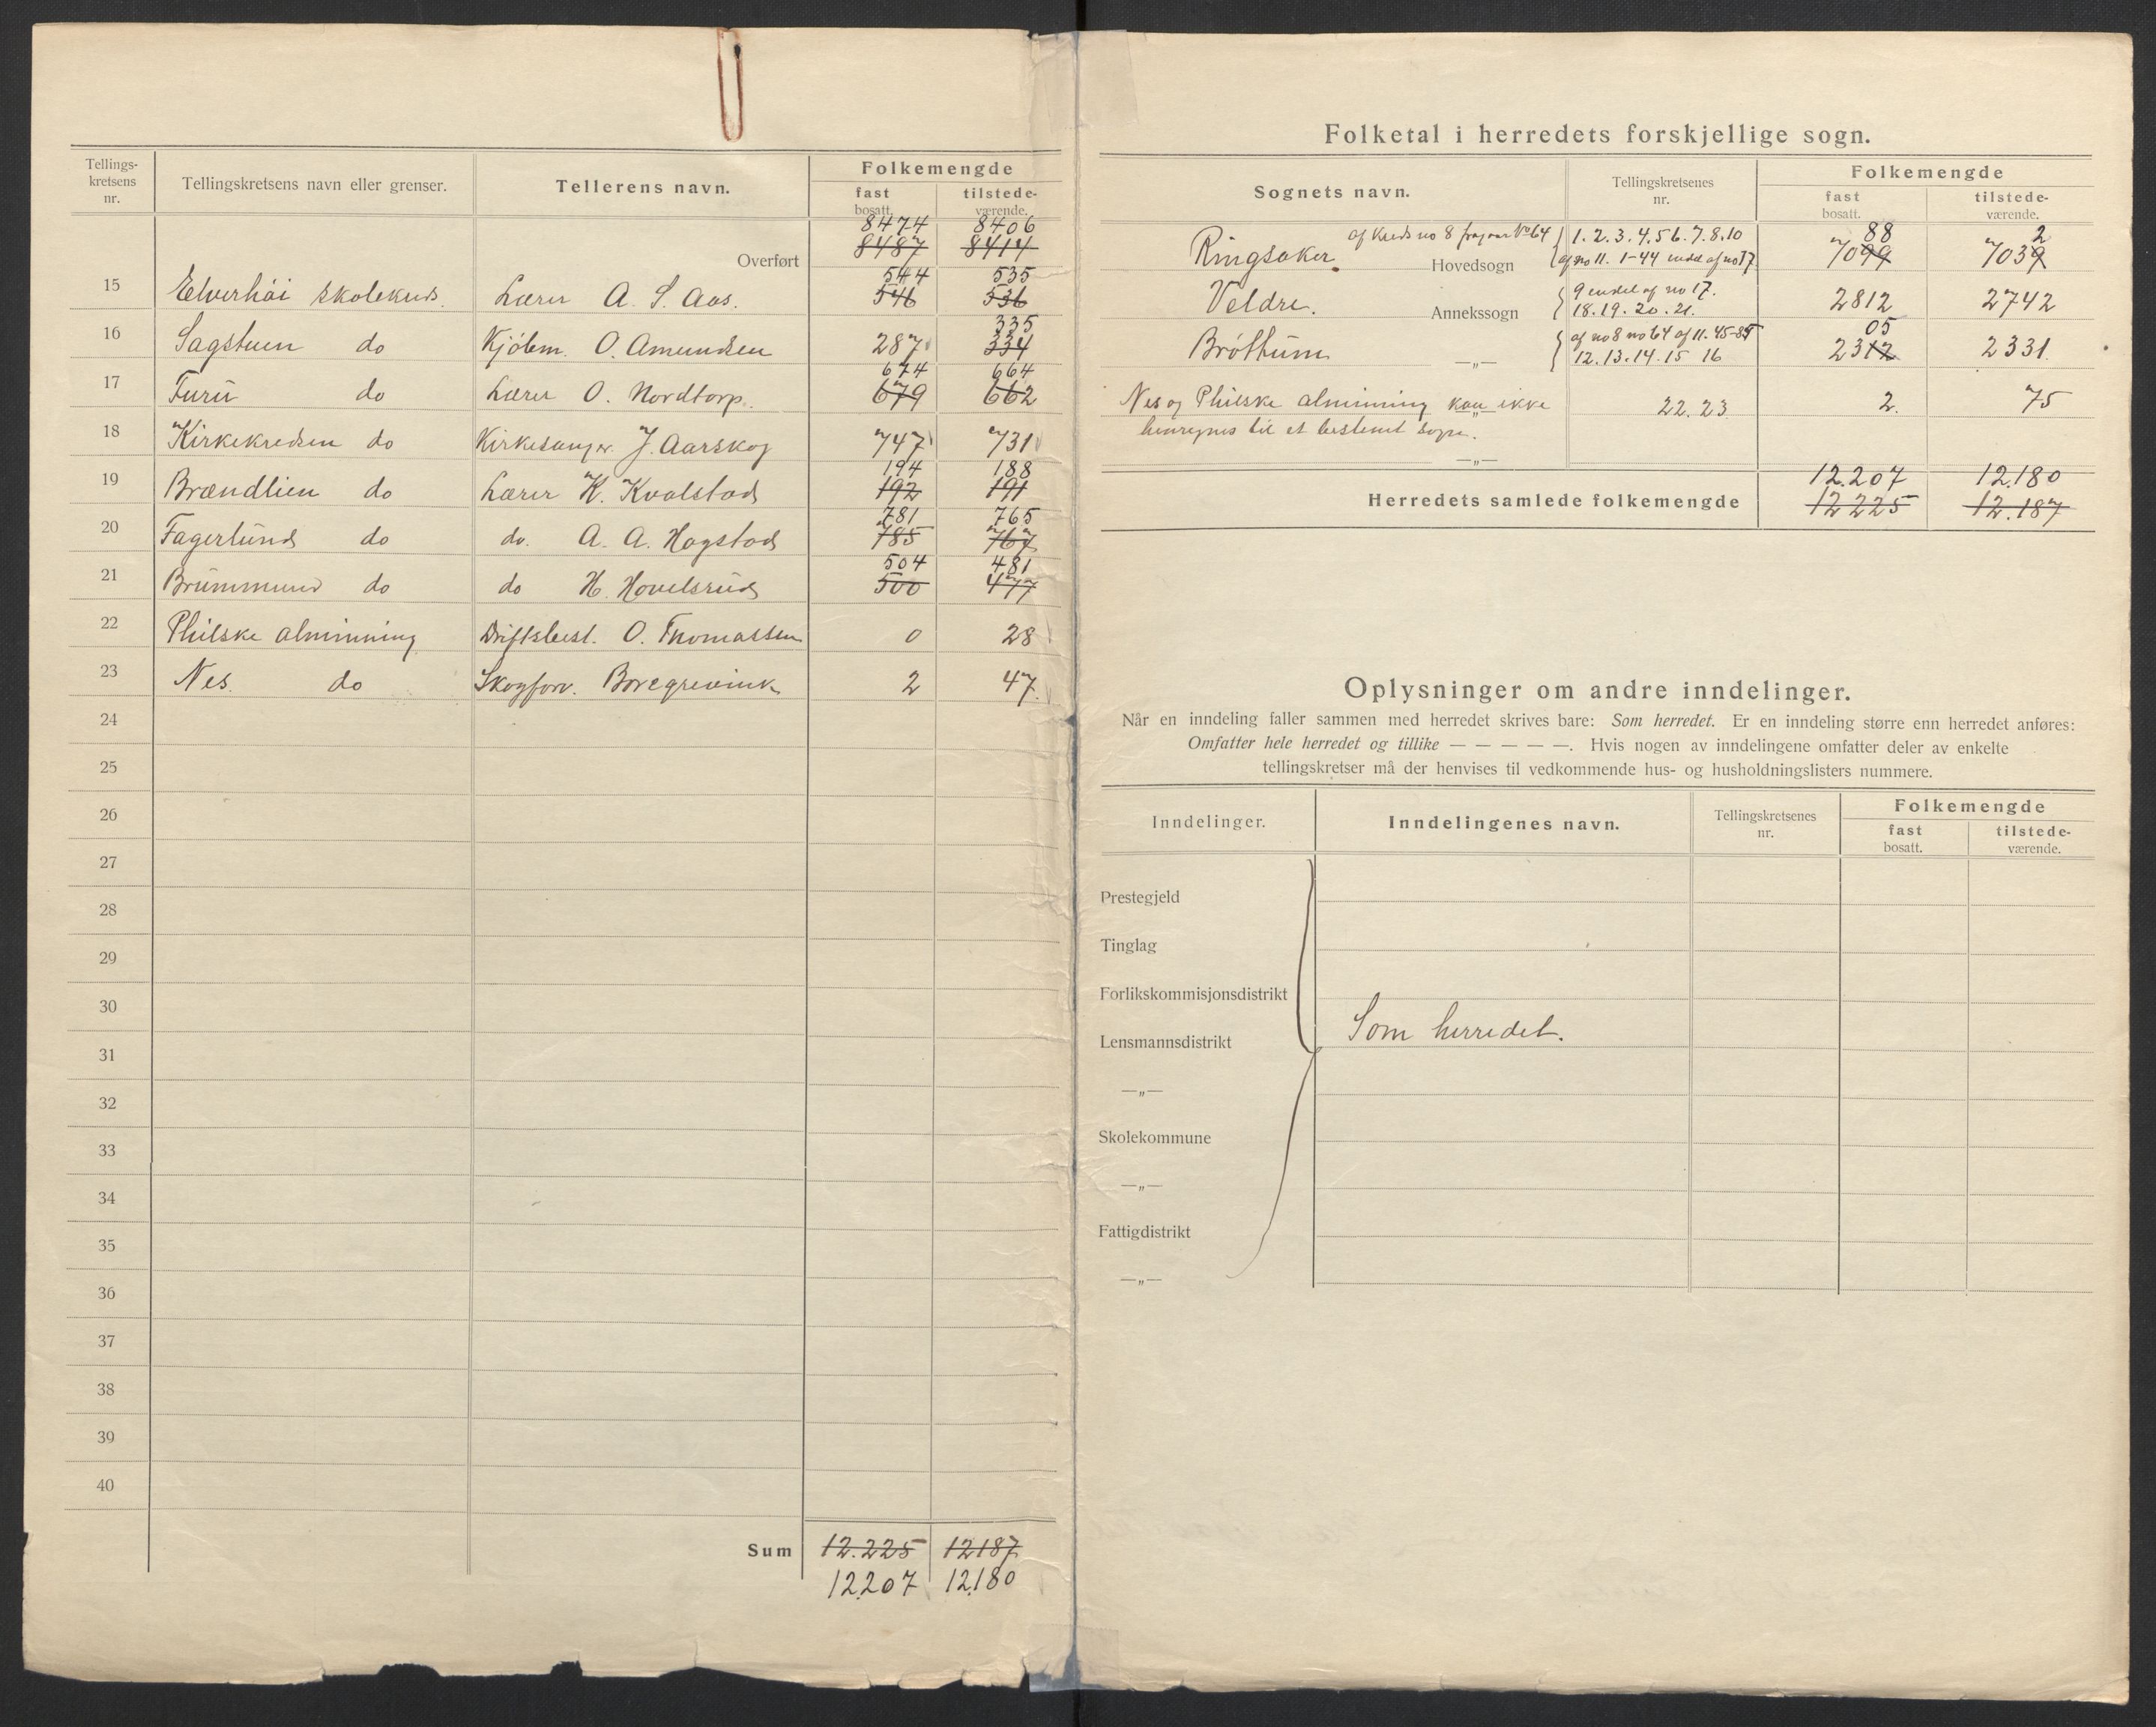 Tellings-kretsens nr. | Tellingskretsens navn eller grenser. | Tellerens navn. | Folkemengde
fast bosatt. | tilstede-værende.
8474 8406
Overført 8487 8414
544 535
15 Elverhöi skolekreds. Lærer A. S. Aas. 546 536
335
16 Sagstuen do Kjöbm. O. Amundsen 287 334
674 664
17 Furu do Lærer O. Nordtorp. 679 662
18 Kirkekredsen do Kirkesanger J. Aarskog 747 731
194 188
19 Brændlien do Lærer K. Kvalstad 192 191
781 765
20 Fagerlund do do. A. A. Hagstad 785 767
504 481
21 Brummund do do H. Hovelsrud 500 477
22 Philske alminning Driftsbest. O. Thomassen 0 28
23 Nes. do Skogforv. Borcgrevink 2 47.
24
25
26
27
28
29
30
31
32
33
34
35
36
37
38
39
40
Sum 12.225 12187
12207 12180
Folketal i herredets forskjellige sogn.
Sognets navn. | Tellingskretsenes nr. | Folkemengde
fast bosatt. | tilstede-værende.
af Kreds no 8 No 64 1. 2. 3. 4. 5 6. 7. 8. 10 88 2
Ringsaker Hovedsogn af no 11. 1-44 endel af no 17. 7099 7039
9 endel af no 17.
Veldre. Annekssogn 18. 19. 20. 21. 2812 2742
af no 8 no 64 af 11. 45-85 05
Bröttum —„— 12. 13. 14. 15 16 2312 2331.
Nes og Philske alminning kan ikke 22. 23 2. 75
henregnes til et bestemt sogn.
—„—
12.207 12.180
Herredets samlede folkemengde 12225 12.187
Oplysninger om andre inndelinger.
Når en inndeling faller sammen med herredet skrives bare: Som herredet. Er en inndeling større enn herredet anføres:
Omfatter hele herredet og tillike — — — — —. Hvis nogen av inndelingene omfatter deler av enkelte
tellingskretser må der henvises til vedkommende hus- og husholdningslisters nummere.
Inndelinger. | Inndelingenes navn. | Tellingskretsenes nr. | Folkemengde
fast bosatt. | tilstede-værende.
Prestegjeld
Tinglag
Forlikskommisjonsdistrikt
Lensmannsdistrikt Som herredet.
—„—
Skolekommune
—„—
Fattigdistrikt
—„—